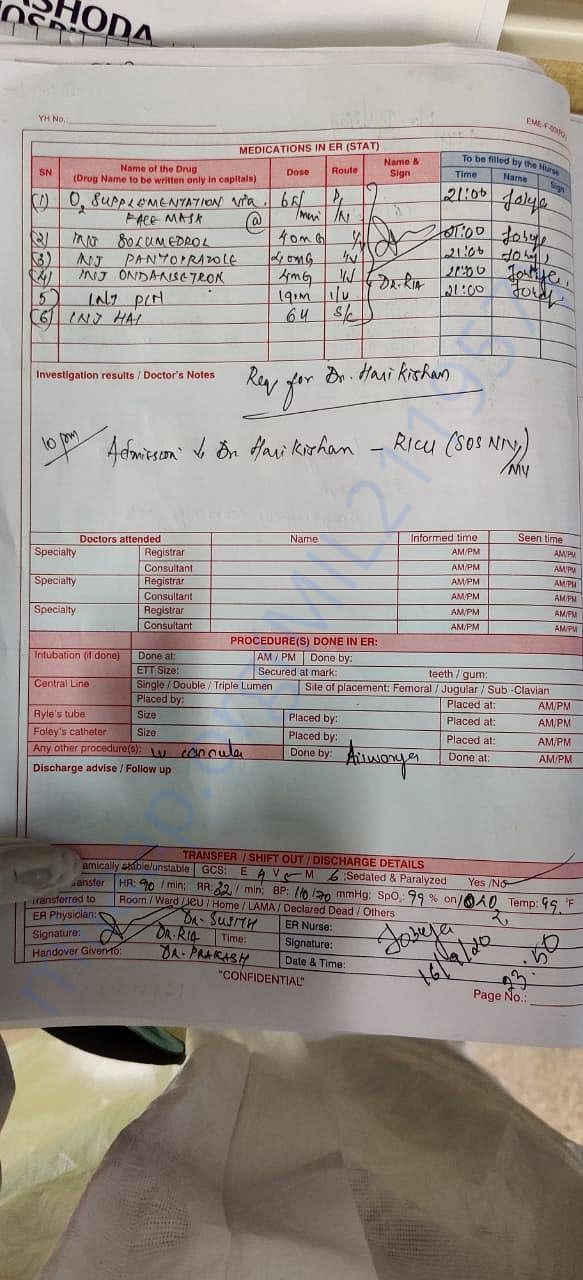 SHODA
YH No.:
EME-F-
MEDICATIONS IN ER (STAT)
SN Name of the Drug (Drug Name to be written only in capitals) Dose Route Name & Sign To be filled by the Nurse
Time Name Sign
(1) O2 SUPPLEMENTATION via 21:00
FACE MASK @
(2) INJ SOLUMEDROL 40mg 21:00
(3) INJ PANTOPRAZOLE 40mg IV 21:00
(4) INJ ONDANSETRON 4mg IV DR. RIA 21:00
5 INJ PCM 1gm 21:00
(6) INJ HAI 6U S/C
Investigation results / Doctor's Notes
Req for Dr. Hari Kishan
10 pm Admission Dr Hari Kishan - RICU (SOS NIV)
Doctors attended Name Informed time Seen time
Specialty Registrar AM/PM AM/PM
Consultant AM/PM AM/PM
Specialty Registrar AM/PM AM/PM
Consultant AM/PM AM/PM
Specialty Registrar AM/PM AM/PM
Consultant AM/PM AM/PM
PROCEDURE(S) DONE IN ER:
Intubation (if done) Done at: AM / PM Done by:
ETT Size: Secured at mark: teeth / gum:
Central Line Single / Double / Triple Lumen Site of placement: Femoral / Jugular / Sub -Clavian
Placed by: Placed at: AM/PM
Ryle's tube Size Placed by: Placed at: AM/PM
Foley's catheter Size Placed by: Placed at: AM/PM
Any other procedure(s): IV cannula Done by: Done at: AM/PM
Discharge advise / Follow up
TRANSFER / SHIFT OUT / DISCHARGE DETAILS
amically stable/unstable GCS: E 4 V M 6 ;Sedated & Paralyzed Yes /No
ansfer HR: 90 / min; RR: 22 / min; BP: 110/70 mmHg; SpO2: 99 % on Temp: 99 °F
Transferred to Room / Ward / ICU / Home / LAMA / Declared Dead / Others
ER Physician: ER Nurse:
Signature: DR. RIA Time: Signature:
Handover Given to: DR. PRAKASH Date & Time: 23.50
"CONFIDENTIAL"
Page No.: